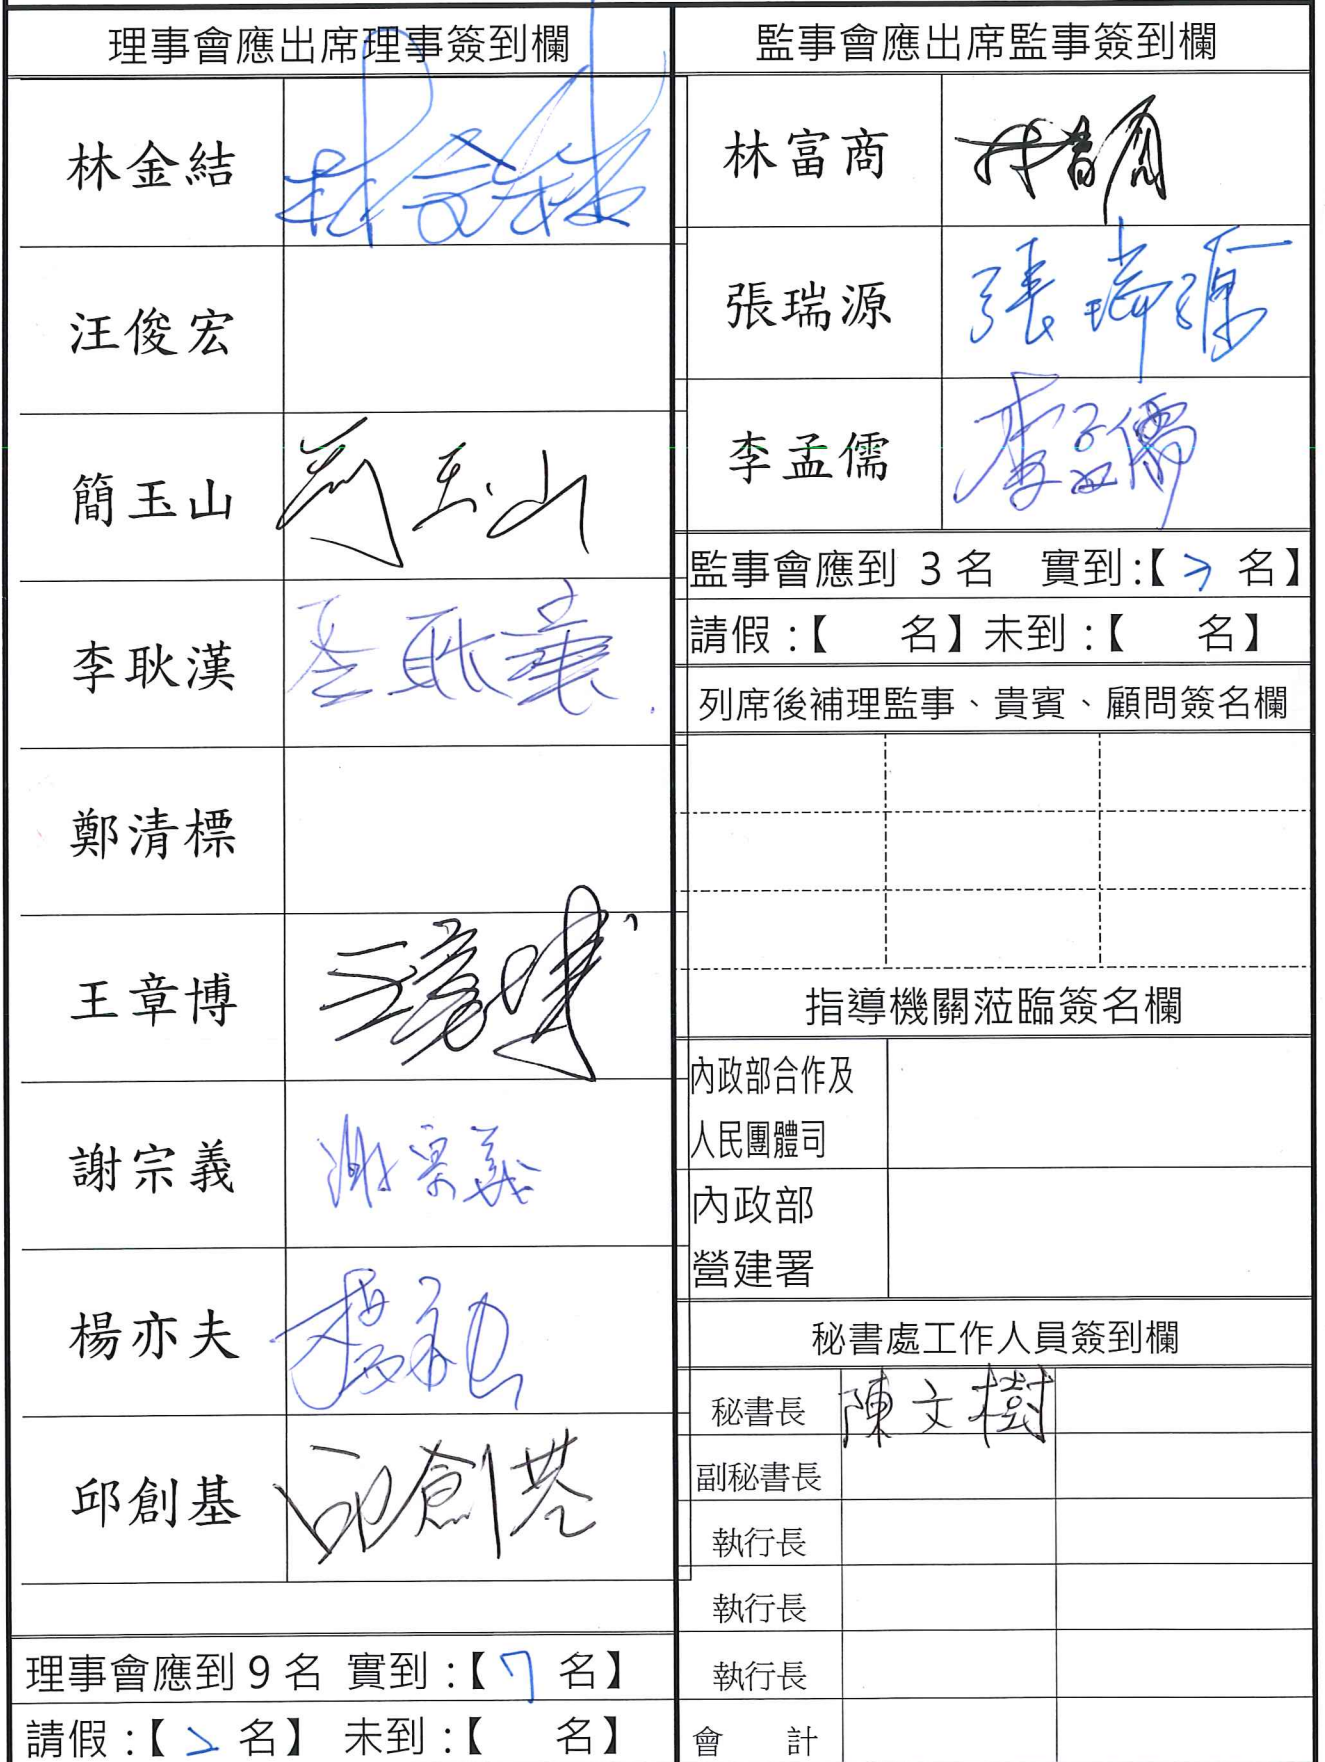 理事會應出席理事簽到欄
林金結
汪俊宏
簡玉山 簡玉山
李耿漢 李耿漢
鄭清標
王章博 王章博
謝宗義 謝宗義
楊亦夫
邱創基 邱創基
理事會應到 9 名 實到:【 7 名】
請假:【 2 名】 未到:【 名】
監事會應出席監事簽到欄
林富商 林富商
張瑞源 張瑞源
李孟儒 李孟儒
監事會應到 3 名 實到:【 3 名】
請假:【 名】未到:【 名】
列席後補理監事、貴賓、顧問簽名欄
指導機關蒞臨簽名欄
內政部合作及
人民團體司
內政部
營建署
秘書處工作人員簽到欄
秘書長 陳文樹
副秘書長
執行長
執行長
執行長
會 計